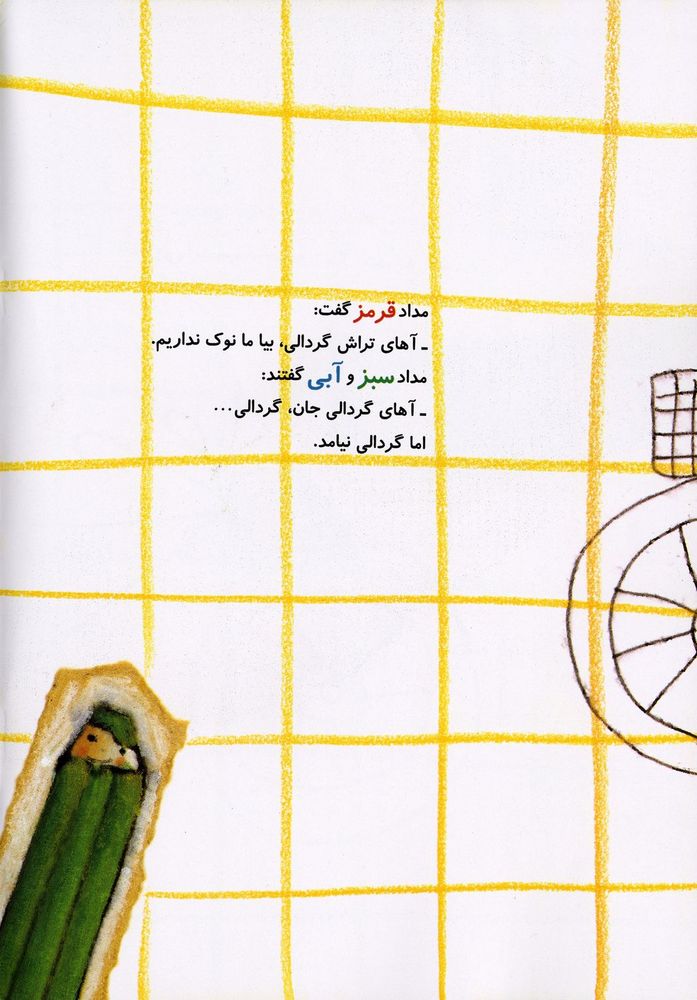 مداد قرمز گفت:
ـ آهای تراش گردالی، بیا ما نوک نداریم.
مداد سبز و آبی گفتند:
ـ آهای گردالی جان، گردالی...
اما گردالی نیامد.